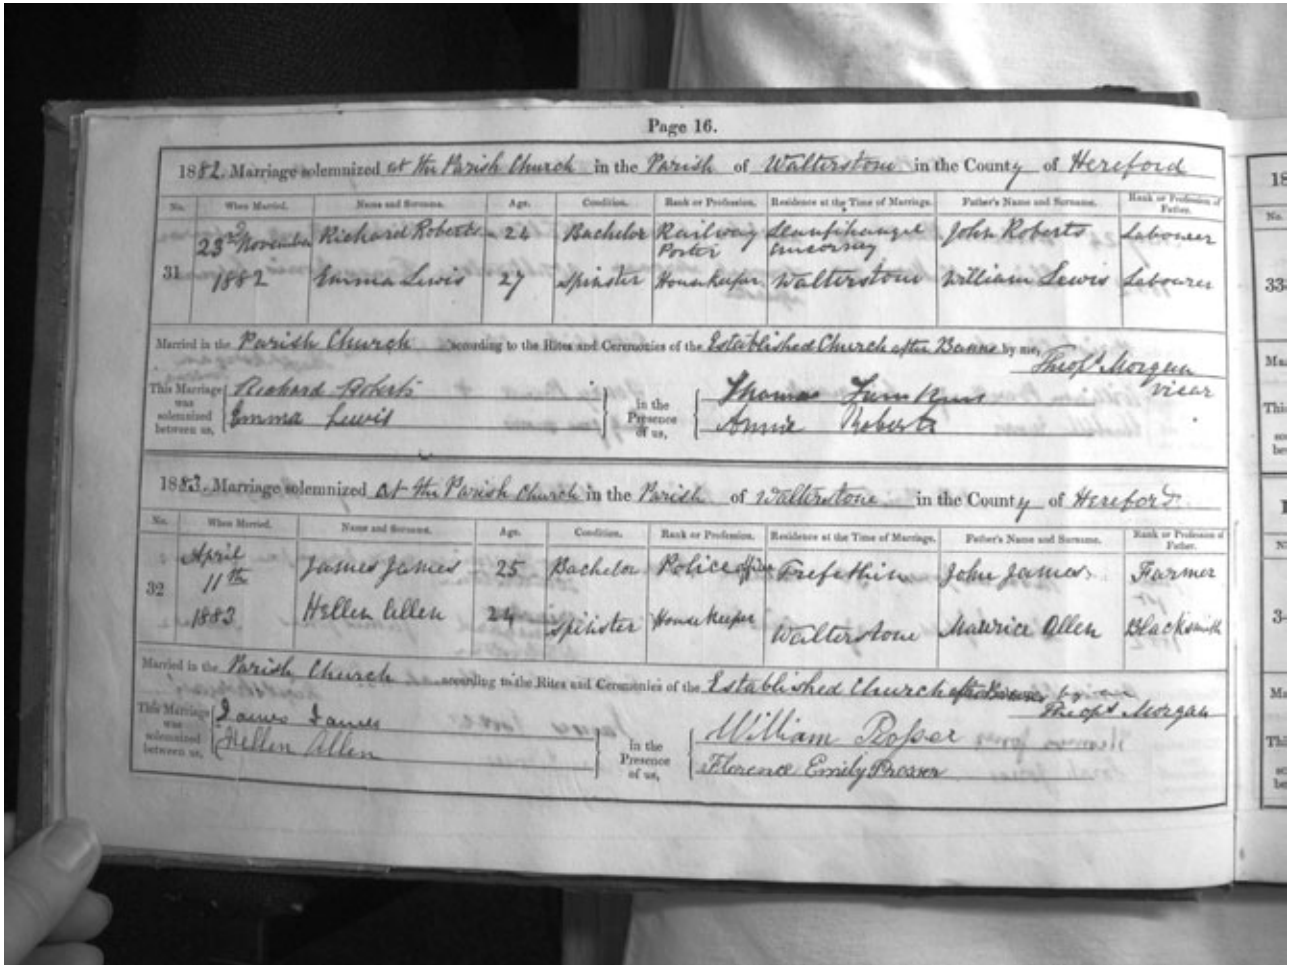 Page 16.
1882. Marriage solemnized at the Parish Church in the Parish of Walterstone in the County of Hereford
No. When Married. Name and Surname. Age. Condition. Rank or Profession. Residence at the Time of Marriage. Father's Name and Surname. Rank or Profession of Father.
31 23rd November 1882 Richard Roberts 24 Bachelor Railway Porter John Roberts Labourer
Emma Lewis 27 Spinster Housekeeper Walterstone William Lewis Labourer
Married in the Parish Church according to the Rites and Ceremonies of the Established Church after Banns by me,
Theops Morgan
Vicar
This Marriage was solemnized between us, Richard Roberts in the Presence of us, Thomas
Emma Lewis Annie Roberts
1883. Marriage solemnized at the Parish Church in the Parish of Walterstone in the County of Hereford.
No. When Married. Name and Surname. Age. Condition. Rank or Profession. Residence at the Time of Marriage. Father's Name and Surname. Rank or Profession of Father.
32 April 11th 1883 James James 25 Bachelor Police officer John James Farmer
Hellen Allen 24 Spinster Housekeeper Walterstone Maurice Allen Blacksmith
Married in the Parish Church according to the Rites and Ceremonies of the Established Church after Banns by me
Theops Morgan
This Marriage was solemnized between us, James James in the Presence of us, William
Hellen Allen Florence Emily Prosser
18
No.
33